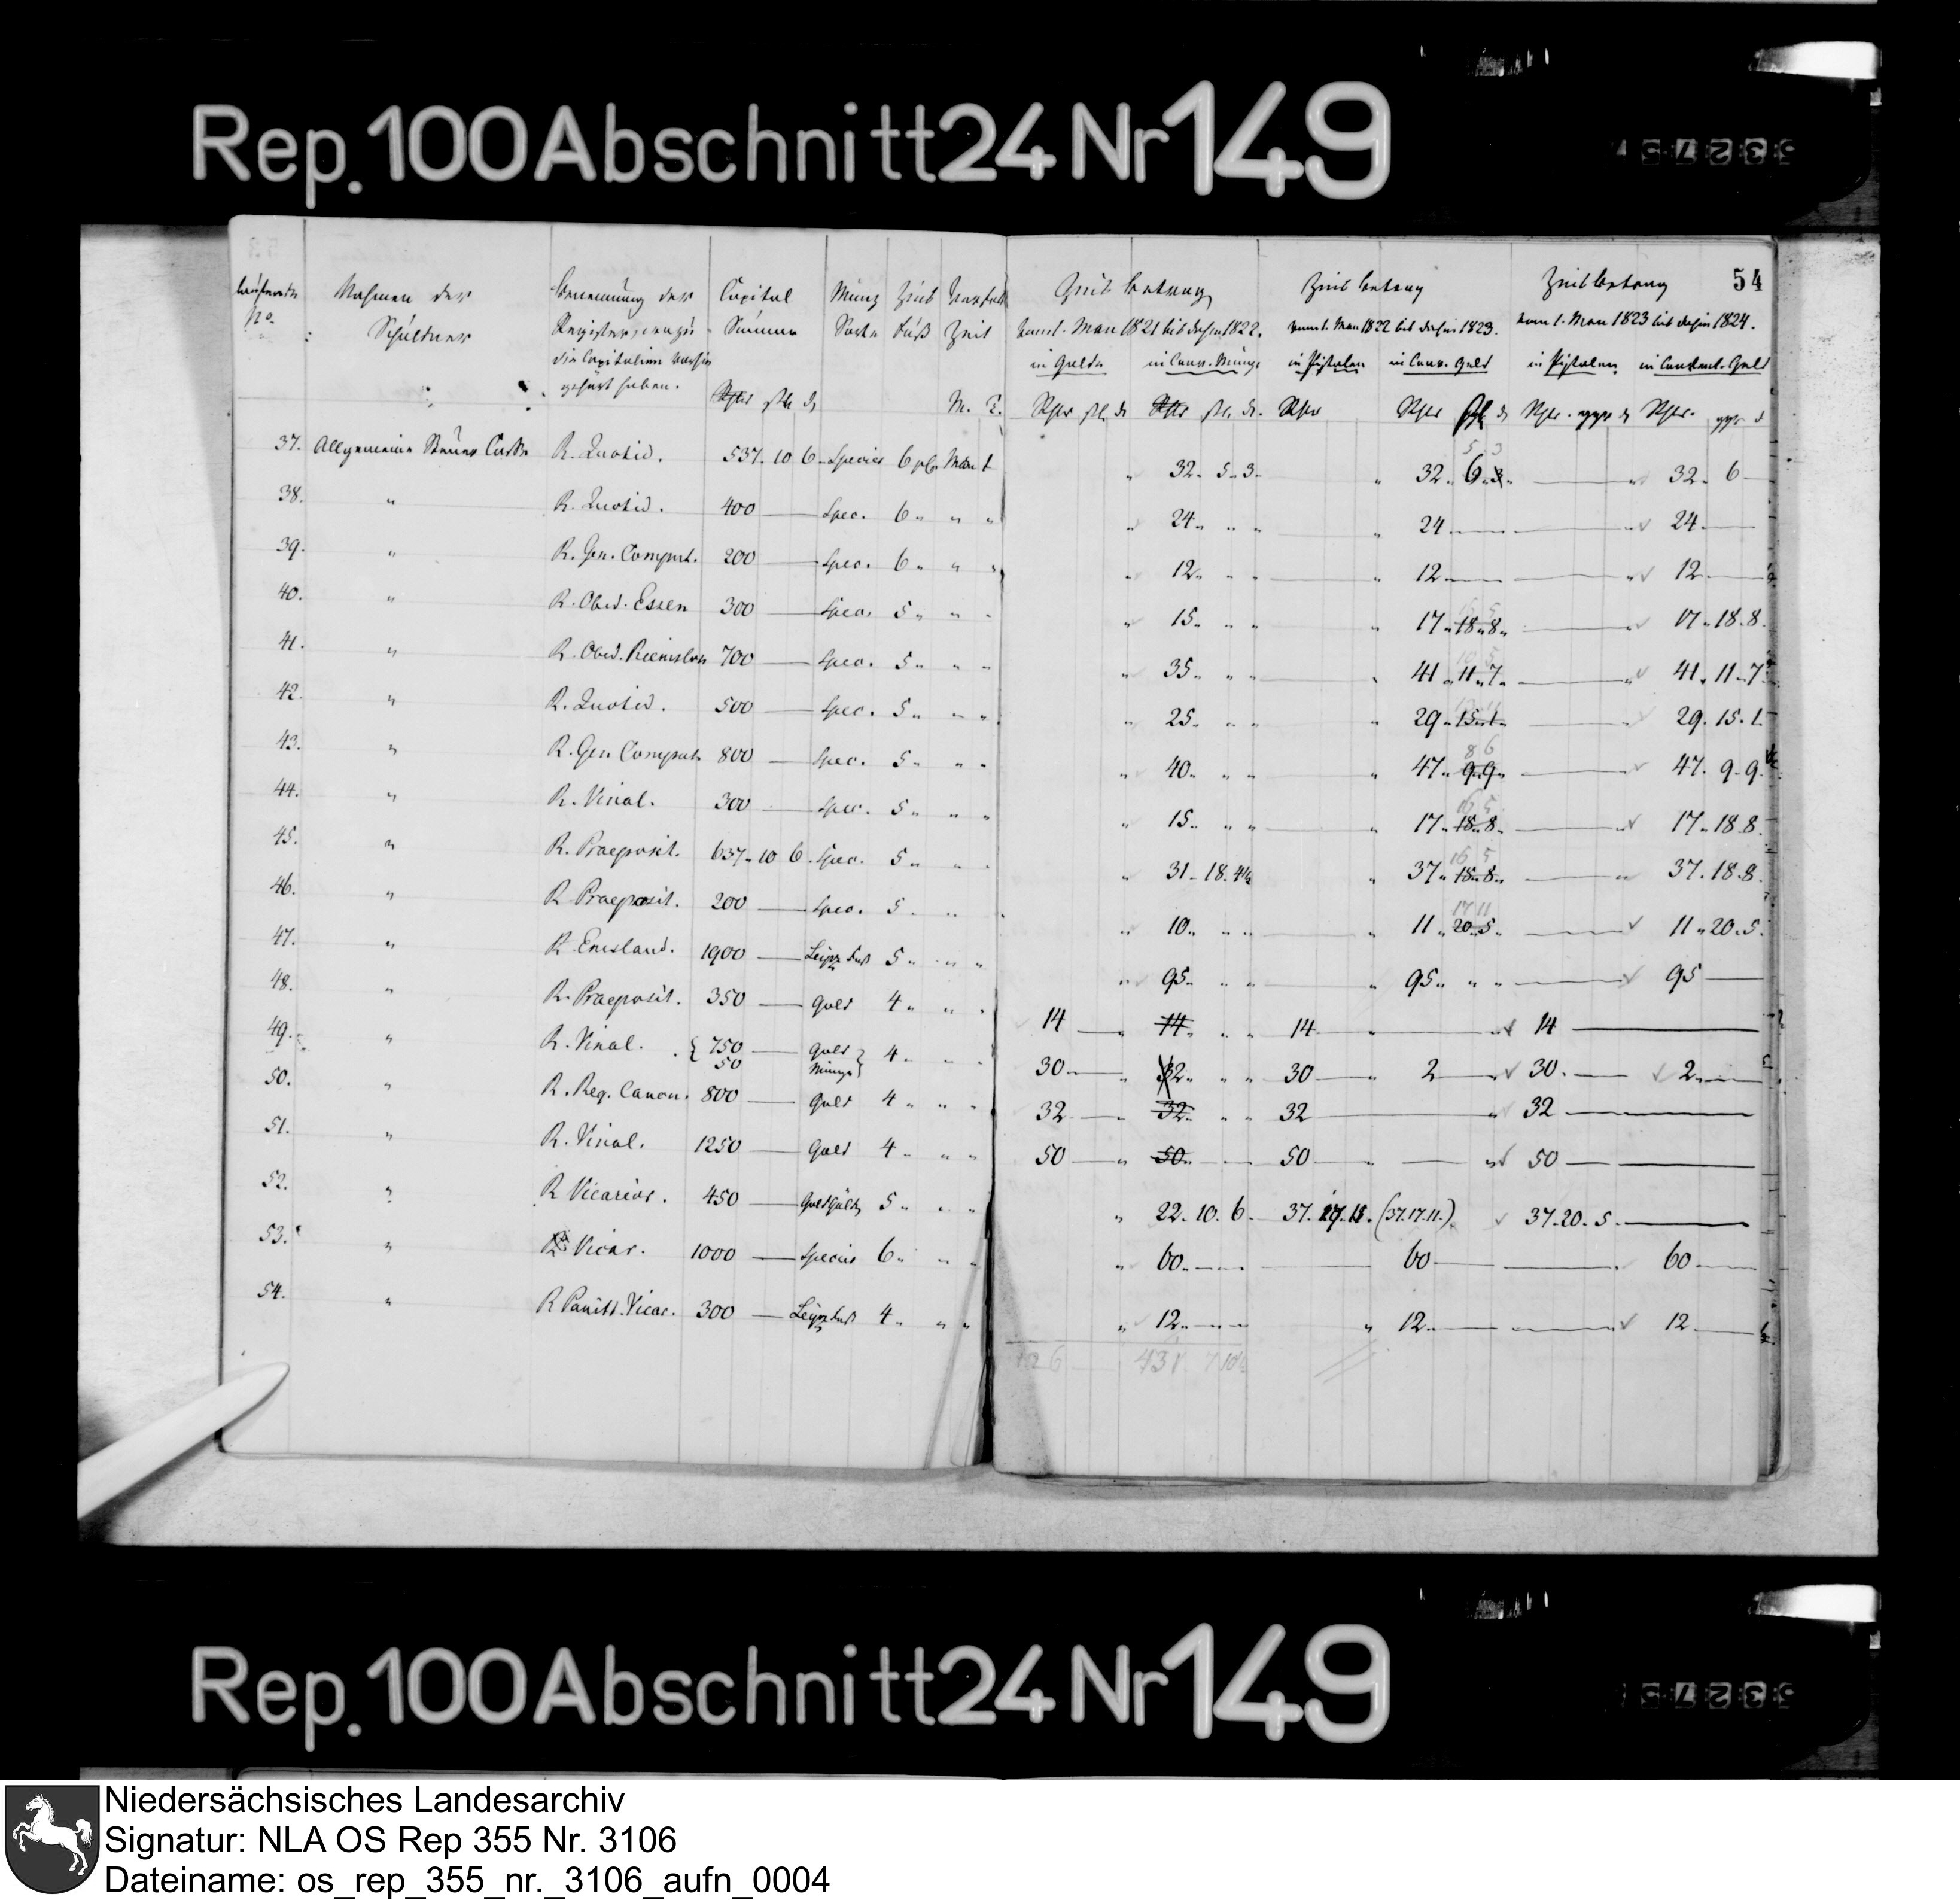 Rep. 100 Abschnitt 24 Nr 149
54
Laufende No. Nahmen der Schuldner Benennung der Register, wozu die Capitalien vorhin gehört haben. Capital Summe Münz Sorte Zins Fuß Verfall Zeit Zins betrag vom 1. May 1821 bis dahin 1822. Zins betrag vom 1. May 1822 bis dahin 1823. Zins betrag vom 1. May 1823 bis dahin 1824.
in Golde in Conv. Münze in Pistolen in Conv. Geld in Pistolen in Convent. Geld
Rthr ßl. d. M. T. Rthr ßl. d. Rthr ßl. d. Rthr Rthr d Rthr. ggr d Rthr. ggr d
37. Allgemeine Steuer Casse R. Quotid. 537. 10 6 Species 6 pC. May 1 " 32. 5. 3. " 32. 6. 3. 5 3 " 32. 6
38. " R. Quotid. 400 Spec. 6 " " " " 24 " " " " 24 " 24
39. " R. Gen. Comput. 200 Spec. 6 " " " " 12 " " " 12 " 12
40. " R. Obed. Essen 300 Spec. 5 " " " " 15. " " " 17. 18. 8. 16 5 " 17. 18. 8.
41. " R. Obed. Riemsloh 700 Spec. 5 " " " " 35. " " " 41. 11. 7. 10 5 " 41. 11. 7
42. " R. Quotid. 500 Spec. 5 " " " " 25. " " " 29. 15. 1. 29. 15. 1.
43. " R. Gen Comput. 800 Spec. 5 " " " " 40. " " " 47. 9. 9. 8 6 47. 9. 9.
44. " R. Vinal. 300 Spec. 5 " " " " 15. " " " 17. 18. 8. 16 5 " 17. 18. 8.
45. " R. Praeposit. 637. 10 6. Spec. 5 " " " " 31. 18. 4½ " 37. 18. 8. 16 5 " 37. 18. 8.
46. " R. Praeposit. 200 Spec. 5 " " " 10. " " " 11. 20. 5. 17 11 11. 20. 5.
47. " R. Emsland. 1900 Leipz. Fuß 5 " " " " 95. " " " 95. " " 95
48. " R. Praeposit. 350 Gold 4 " " " 14 " 14. " " 14 " " 14
49. " R. Vinal. { 750 50 Gold Münze } 4 " " " 30 " 32. " " 30 " 2 " 30. 2.
50. " R. Reg. Canon. 800 Gold 4 " " " 32 " 32. " " 32 " 32
51. " R. Vinal. 1250 Gold 4 " " " 50 " 50. 50 " " 50
52. " R. Vicarior. 450 Goldgulden 5 " " " " 22. 10. 6. 37. 17. 11. (37. 17. 11.) 37. 20. 5.
53. " R. Vicar. 1000 Species 6 " " " " 60. 60 60
54. " R Panitt. Vicar. 300 Leipz. Fuß 4 " " " " 12. " 12. 12
126 431. 7 10½
Rep. 100 Abschnitt 24 Nr 149
Niedersächsisches Landesarchiv
Signatur: NLA OS Rep 355 Nr. 3106
Dateiname: os_rep_355_nr._3106_aufn_0004